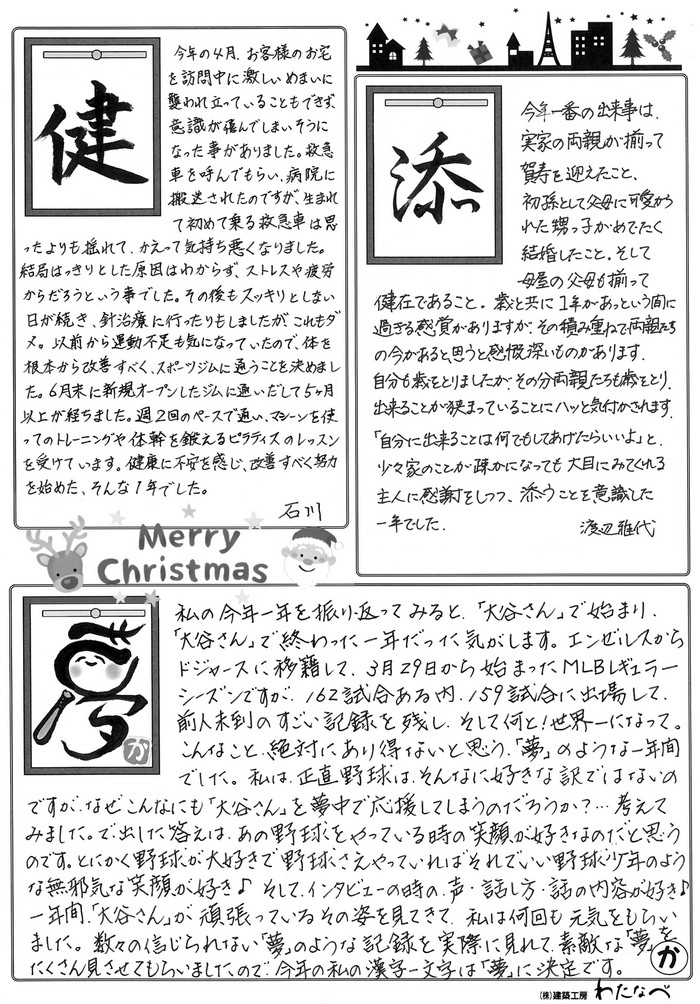 健
今年の4月、お客様のお宅
を訪問中に激しいめまいに
襲われ立っていることもできず、
意識が飛んでしまいそうに
なった事がありました。救急
車を呼んでもらい、病院に
搬送されたのですが、生まれ
て初めて乗る救急車は思
ったよりも揺れて、かえって気持ち悪くなりました。
結局はっきりとした原因はわからず、ストレスや疲労
からだろうという事でした。その後もスッキリとしない
日が続き、針治療に行ったりもしましたが、これもダ
メ。以前から運動不足も気になっていたので、体を
根本から改善すべく、スポーツジムに通うことを決めまし
た。6月末に新規オープンしたジムに通いだして5ヶ月
以上が経ちました。週2回のペースで通い、マシーンを使
ってのトレーニングや体幹を鍛えるピラティスのレッスン
を受けています。健康に不安を感じ、改善すべく努力
を始めた、そんな1年でした。
石川
添
今年一番の出来事は、
実家の両親が揃って
賀寿を迎えたこと、
初孫として父母に可愛がら
れた甥っ子がめでたく
結婚したこと。そして
母屋の父母も揃って
健在であること。歳と共に1年があっという間に
過ぎる感覚がありますが、その積み重ねで両親たち
の今があると思うと感慨深いものがあります。
自分も歳をとりましたが、その分両親たちも歳をとり、
出来ることが狭まっていることにハッと気付かされます。
「自分に出来ることは何でもしてあげたらいいよ」と、
少々家のことが疎かになっても大目にみてくれる
主人に感謝をしつつ、添うことを意識した
一年でした。
渡辺雅代
Merry
Christmas
夢
か
私の今年一年を振り返ってみると、「大谷さん」で始まり、
「大谷さん」で終わった一年だった気がします。エンゼルスから
ドジャースに移籍して、3月29日から始まったMLBレギュラー
シーズンですが、162試合ある内、159試合に出場して、
前人未到のすごい記録を残し、そして何と!世界一になって。
こんなこと、絶対にあり得ないと思う、「夢」のような一年間
でした。私は、正直野球は、そんなに好きな訳ではないの
ですが、なぜこんなにも「大谷さん」を夢中で応援してしまうのだろうか?…考えて
みました。で、出した答えは、あの野球をやっている時の笑顔が好きなのだと思う
のです。とにかく野球が大好きで野球さえやっていればそれでいい野球少年のよう
な無邪気な笑顔が好き♪ そして、インタビューの時の、声・話し方・話の内容が好き♪
一年間、「大谷さん」が頑張っているその姿を見てきて、私は何回も元気をもらい
ました。数々の信じられない「夢」のような記録を実際に見れて、素敵な「夢」を
たくさん見させてもらいましたので、今年の私の漢字一文字は「夢」に決定です。
か
(株)建築工房 わたなべ